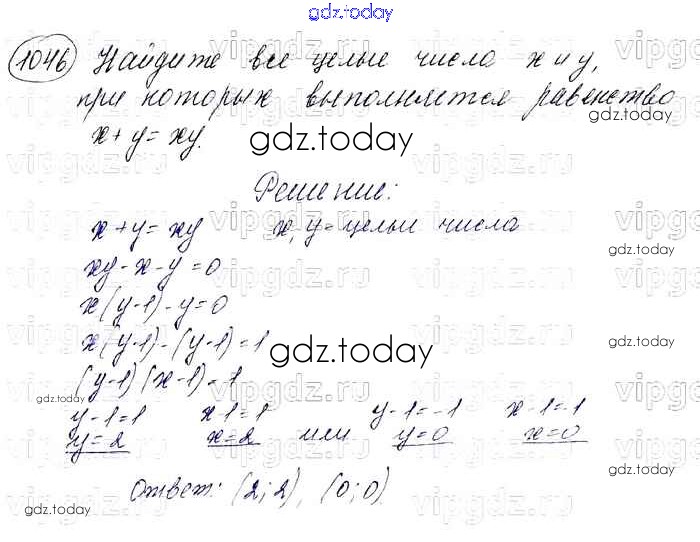 gdz.today
1046 Найдите все целые числа x и y,
при которых выполняется равенство
gdz.today
x + y = xy.
gdz.today
Решение:
x + y = xy x, y - целые числа
gdz.today
xy - x - y = 0
x(y-1) - y = 0
x(y-1) - (y-1) = 1
gdz.today
gdz.today
(y-1)(x-1) = 1
gdz.today
gdz.today
y-1=1 x-1=1 y-1=-1 x-1=-1
y=2 x=2 или y=0 x=0
Ответ: (2;2), (0;0).
gdz.today
gdz.today
vipgdz.ru